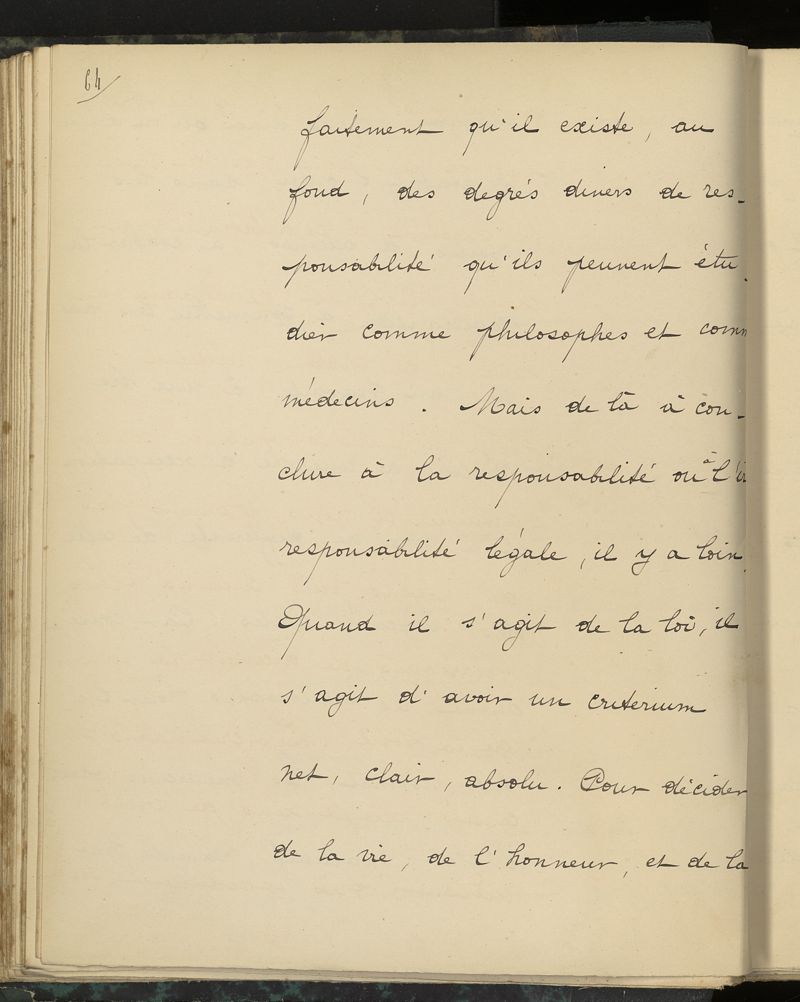 64
faitement qu'il existe, au
fond, des degrés divers de res-
ponsabilité qu'ils peuvent étu-
dier comme philosophes et comm
médecins. Mais de là à con-
clure à la responsabilité ou à l'ir
responsabilité légale, il y a loin.
Quand il s'agit de la loi, il
s'agit d'avoir un criterium
net, clair, absolu. Pour décider
de la vie, de l'honneur, et de la